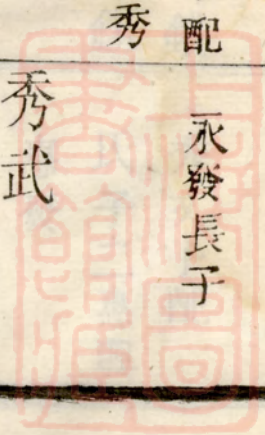 配
秀
永發長子
秀武